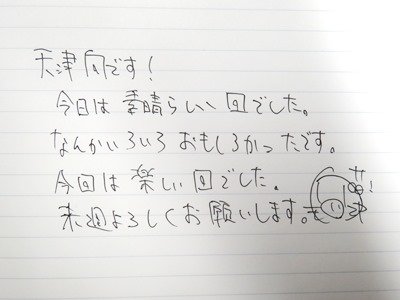 天津向です!
今日は素晴らしい回でした。
なんかいろいろおもしろかったです。
今回は楽しい回でした。
来週よろしくお願いします。